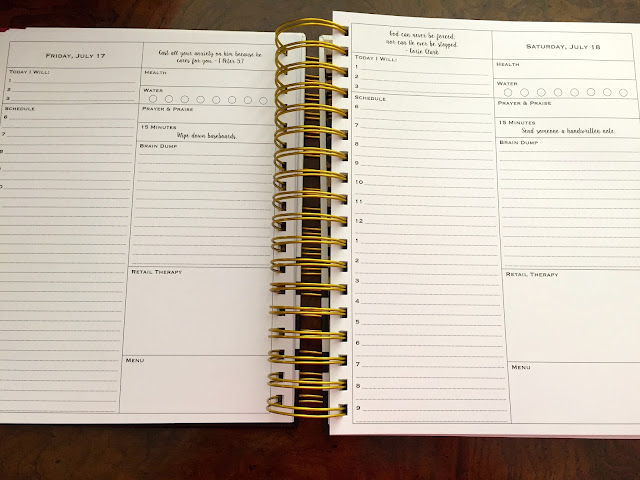 FRIDAY, JULY 17
Cast all your anxiety on him because he
cares for you. - 1 Peter 5:7
TODAY I WILL:
1
2
3
SCHEDULE
6
7
8
9
HEALTH
WATER
PRAYER & PRAISE
15 MINUTES
Wipe down baseboards.
BRAIN DUMP
RETAIL THERAPY
MENU
God can never be forced,
nor can He ever be stopped.
-Larie Clark
SATURDAY, JULY 18
TODAY I WILL:
1
2
3
SCHEDULE
6
7
8
9
10
11
12
1
2
3
4
5
6
7
8
9
HEALTH
WATER
PRAYER & PRAISE
15 MINUTES
Send someone a handwritten note.
BRAIN DUMP
RETAIL THERAPY
MENU